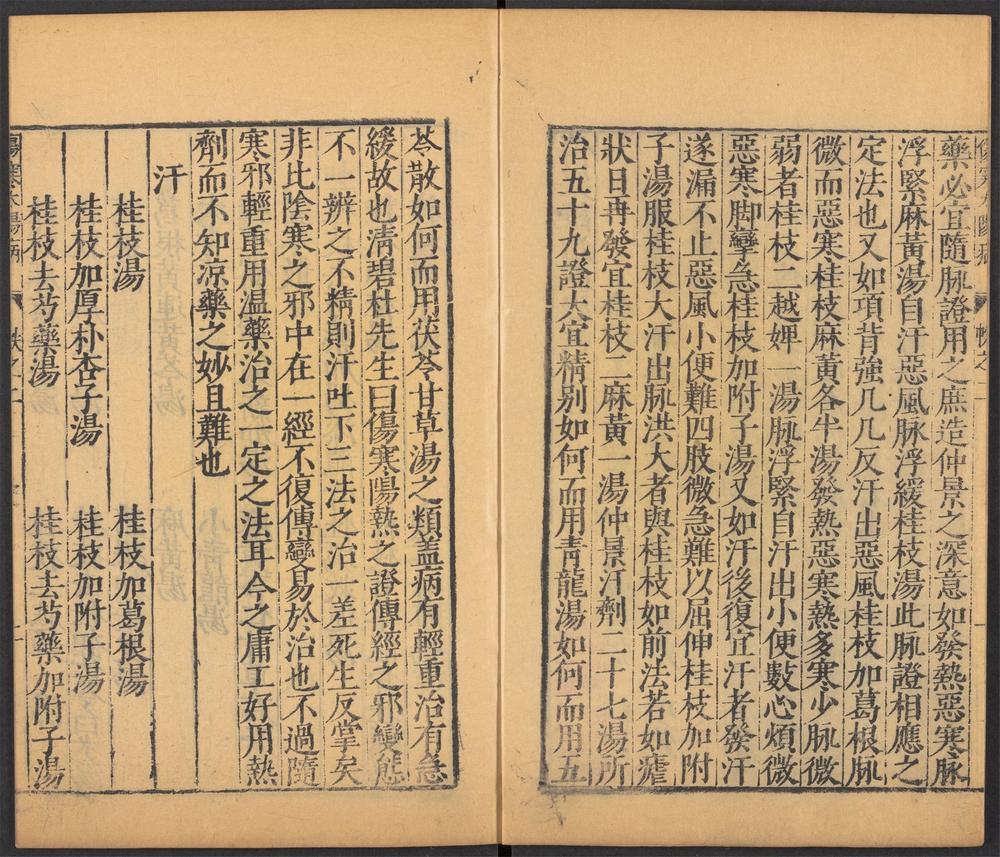 藥必宜隨脉證用之庶造仲景之深意如發熱惡寒脉
浮緊麻黃湯自汗惡風脉浮緩桂枝湯此脉證相應之
定法也又如項背強几几反汗出惡風桂枝加葛根脉
微而惡寒桂枝麻黃各半湯發熱惡寒熱多寒少脉微
弱者桂枝二越婢一湯脉浮緊自汗出小便數心煩微
惡寒脚攣急桂枝加附子湯又如汗後復宜汗者發汗
遂漏不止惡風小便難四肢微急難以屈伸桂枝加附
子湯服桂枝大汗出脉洪大者與桂枝如前法若如瘧
狀日再發宜桂枝二麻黃一湯仲景汗劑二十七湯所
治五十九證大宜精別如何而用青龍湯如何而用五
苓散如何而用茯苓甘草湯之類盖病有輕重治有急
緩故也清碧杜先生曰傷寒陽熱之證傳經之邪變態
不一辨之不精則汗吐下三法之治一差死生反掌矣
非比陰寒之邪中在一經不復傳變易於治也不過隨
寒邪輕重用温藥治之一定之法耳今之庸工好用熱
劑而不知凉藥之妙且難也
汗
桂枝湯 桂枝加葛根湯
桂枝加厚朴杏子湯 桂枝加附子湯
桂枝去芍藥湯 桂枝去芍藥加附子湯